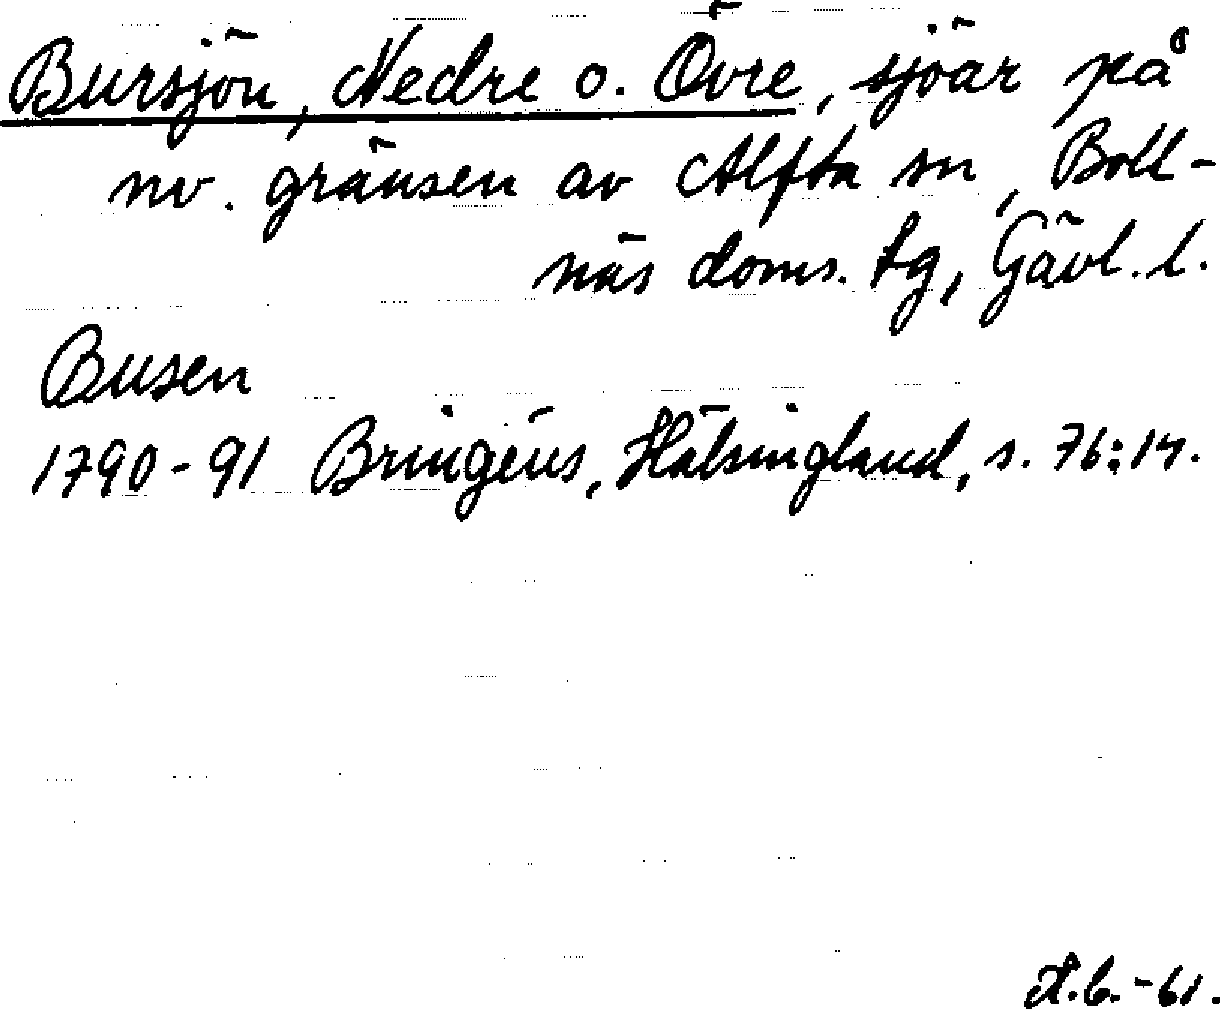 Bursjön, Nedre o. Övre, sjöar på
nv. gränsen av Alfta sn, Boll-
näs doms. tg, Gävl. l.
Busen
1790-91 Bringéus, Hälsingland, s. 76:14.
A.b.-61.